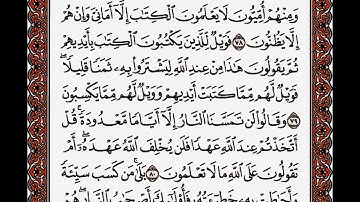 وَمِنْهُمْ أُمِّيُّونَ لَا يَعْلَمُونَ ٱلْكِتَٰبَ إِلَّآ أَمَانِىَّ وَإِنْ هُمْ
إِلَّا يَظُنُّونَ ٧٨ فَوَيْلٌ لِّلَّذِينَ يَكْتُبُونَ ٱلْكِتَٰبَ بِأَيْدِيهِمْ
ثُمَّ يَقُولُونَ هَٰذَا مِنْ عِندِ ٱللَّهِ لِيَشْتَرُوا۟ بِهِۦ ثَمَنًا قَلِيلًا ۖ
فَوَيْلٌ لَّهُم مِّمَّا كَتَبَتْ أَيْدِيهِمْ وَوَيْلٌ لَّهُم مِّمَّا يَكْسِبُونَ
٧٩ وَقَالُوا۟ لَن تَمَسَّنَا ٱلنَّارُ إِلَّآ أَيَّامًا مَّعْدُودَةً ۚ قُلْ
أَتَّخَذْتُمْ عِندَ ٱللَّهِ عَهْدًا فَلَن يُخْلِفَ ٱللَّهُ عَهْدَهُۥٓ ۖ أَمْ
تَقُولُونَ عَلَى ٱللَّهِ مَا لَا تَعْلَمُونَ ٨٠ بَلَىٰ مَن كَسَبَ سَيِّئَةً
وَأَحَٰطَتْ بِهِۦ خَطِيٓـَٔتُهُۥ فَأُو۟لَٰٓئِكَ أَصْحَٰبُ ٱلنَّارِ ۖ هُمْ